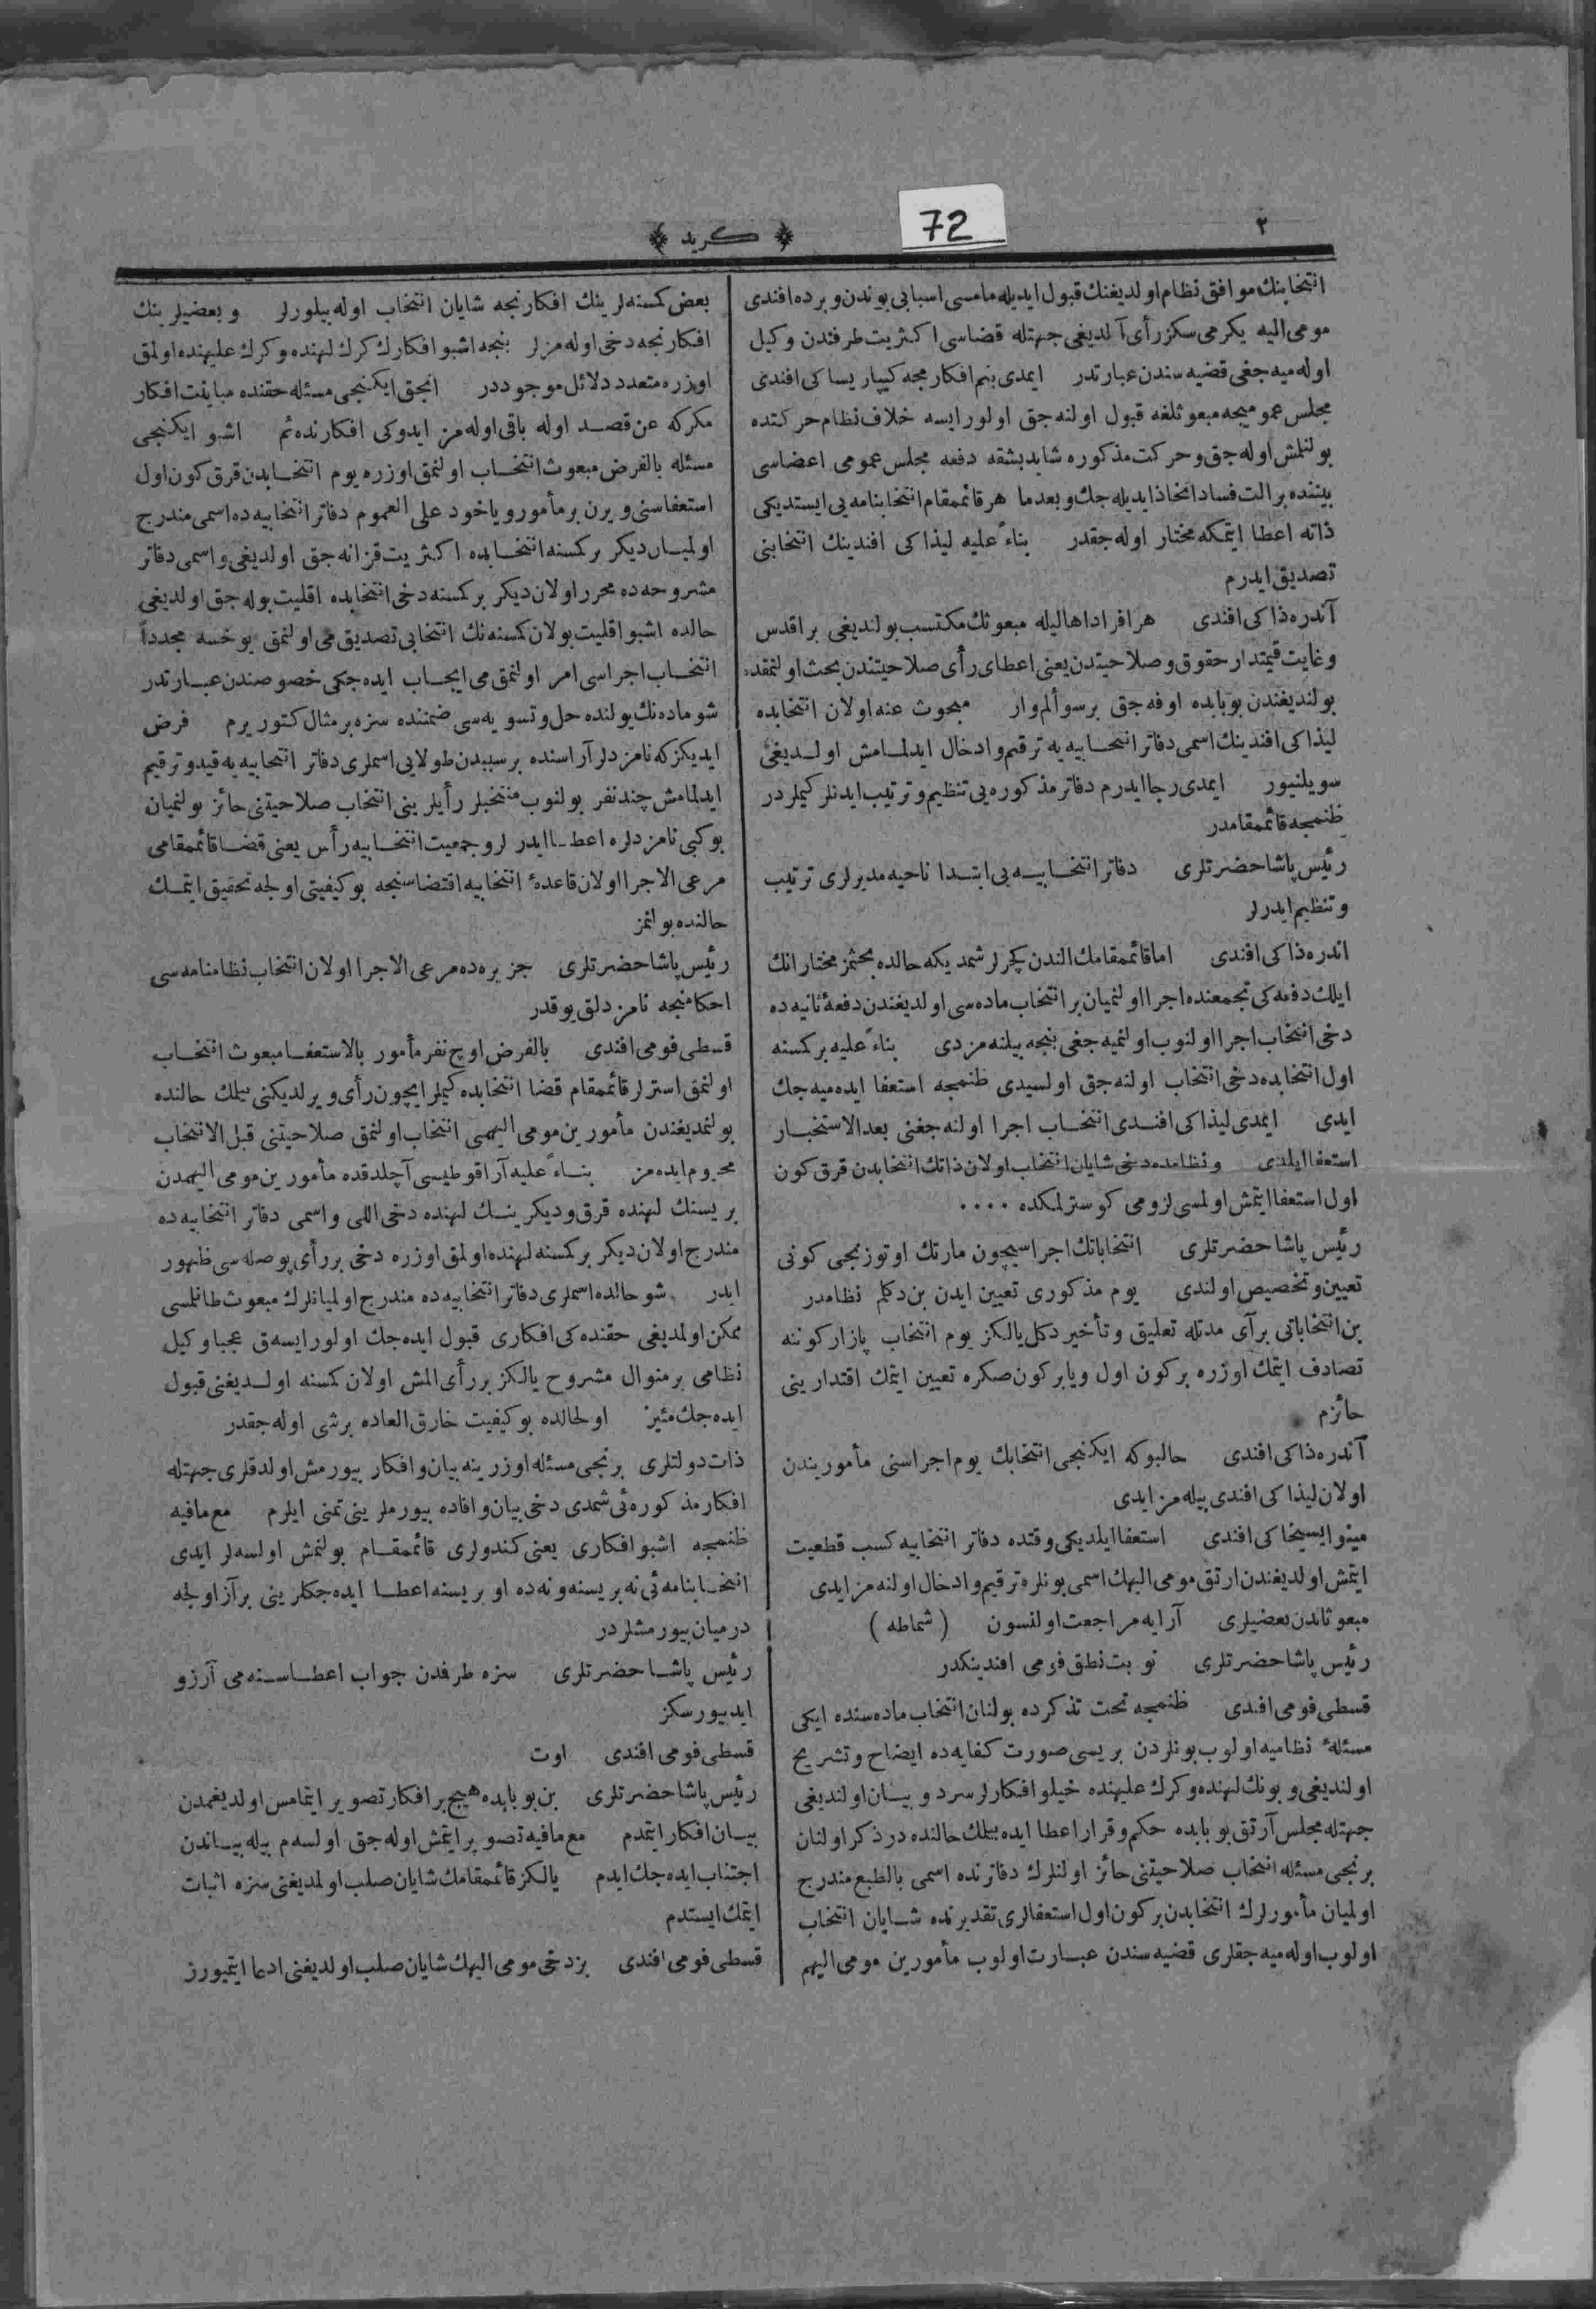 ٢
72
كريد
انتخابنك موافق نظام اولديغنك قبول ايديله مامسى اسبابى بوندن و برده افندى
مومى اليه يكرمى سكز رأى آلديغى جهتله قضاسى اكثريت طرفندن وكيل
اوله ميه جغى قضيه سندن عبارتدر ايمدى بنم افكارمجه كيپاريساكى افندى
مجلس عموميجه مبعوثلغه قبول اولنه جق اولور ايسه خلاف نظام حركتده
بولنلمش اوله جق و حركت مذكوره شايد بشقه دفعه مجلس عمومى اعضاسى
بيننده بر الت فساد اتخاذ ايديله جك و بعدما هر قائممقام انتخابنامه يى ايستديكى
ذاته اعطا ايتمكه مختار اوله جقدر بناءً عليه ليذاكى افندينك انتخابنى
تصديق ايدرم
آندره ذاكى افندى هر افراد اهاليله مبعوثك مكتسب بولنديغى بر اقدس
و غايت قيمتدار حقوق و صلاحيتدن يعنى اعطاى رأى صلاحيتندن بحث اولنمقده
بولنديغندن بوبابده اوفه جق بر سوألم وار مبحوث عنه اولان انتخابده
ليذاكى افندينك اسمى دفاتر انتخابيه يه ترقيم و ادخال ايدلمامش اولديغى
سويلنيور ايمدى رجا ايدرم دفاتر مذكوره يى تنظيم و ترتيب ايدنلر كيملردر
ظنمجه قائممقامدر
رئيس پاشا حضرتلرى دفاتر انتخابيه يى ابتدا ناحيه مديرلرى ترتيب
و تنظيم ايدرلر
اندره ذاكى افندى اما قائممقامك الندن كچرلر شمديكه حالده بحثمز مختارانك
ايلك دفعه كى تجمعنده اجرا اولنميان بر انتخاب ماده سى اولديغندن دفعهٔ ثانيه ده
دخى انتخاب اجرا اولنوب اولنميه جغى بنجه بيلنه مزدى بناءً عليه بر كسنه
اول انتخابده دخى انتخاب اولنه جق اولسيدى ظنمجه استعفا ايده ميه جك
ايدى ايمدى ليذاكى افندى انتخاب اجرا اولنه جغنى بعد الاستخبار
استعفا ايلدى و نظامده دخى شايان انتخاب اولان ذاتك انتخابدن قرق كون
اول استعفا ايتمش اولمسى لزومى كوسترلمكده ....
رئيس پاشا حضرتلرى انتخاباتك اجراسيچون مارتك اوتوزنجى كونى
تعيين و تخصيص اولندى يوم مذكورى تعيين ايدن بن دكلم نظامدر
بن انتخاباتى بر آى مدتله تعليق و تأخير دكل يالكز يوم انتخاب پازار كوننه
تصادف ايتمك اوزره بر كون اول ويا بر كون صكره تعيين ايتمك اقتدارينى
حائزم
آندره ذاكى افندى حالبوكه ايكنجى انتخابك يوم اجراسنى مأموريندن
اولان ليذاكى افندى بيله مز ايدى
مينوايسيخاكى افندى استعفا ايلديكى وقتده دفاتر انتخابيه كسب قطعيت
ايتمش اولديغندن ارتق مومى اليهك اسمى بونلره ترقيم و ادخال اولنه مز ايدى
مبعوثاندن بعضيلرى آرايه مراجعت اولنسون (شماطه)
رئيس پاشا حضرتلرى نوبت نطق فومى افندينكدر
قسطى فومى افندى ظنمجه تحت تذكرده بولنان انتخاب ماده سنده ايكى
مسئلهٔ نظاميه اولوب بونلردن بريسى صورت كفايه ده ايضاح و تشريح
اولنديغى و بونك لهنده و كرك عليهنده خيلو افكارلر سرد و بيان اولنديغى
جهتله مجلس آرتق بوبابده حكم و قرار اعطا ايده بيلك حالنده در ذكر اولنان
برنجى مسئله انتخاب صلاحيتنى حائز اولنلرك دفاترنده اسمى بالطبع مندرج
اولميان مأمورلرك انتخابدن بر كون اول استعفالرى تقديرنده شايان انتخاب
اولوب اوله ميه جقلرى قضيه سندن عبارت اولوب مأمورين مومى اليهم
بعض كسنه لرينك افكارنجه شايان انتخاب اوله بيلورلر و بعضيلرينك
افكارنجه دخى اوله مزلر بنجه اشبو افكارك كرك لهنده و كرك عليهنده اولمق
اوزره متعدد دلائل موجوددر انجق ايكنجى مسئله حقنده مباينت افكار
مكركه عن قصد اوله باقى اوله مز ايدوكى افكارنده ثم اشبو ايكنجى
مسئله بالفرض مبعوث انتخاب اولنمق اوزره يوم انتخابدن قرق كون اول
استعفاسنى ويرن بر مأمور و ياخود على العموم دفاتر انتخابيه ده اسمى مندرج
اولميان ديكر بر كسنه انتخابده اكثريت قزانه جق اولديغى و اسمى دفاتر
مشروحه ده محرر اولان ديكر بر كسنه دخى انتخابده اقليت بوله جق اولديغى
حالده اشبو اقليت بولان كسنه نك انتخابى تصديق مى اولنمق يوخسه مجدداً
انتخاب اجراسى امر اولنمق مى ايجاب ايده جكى خصوصندن عبارتدر
شو ماده نك يولنده حل و تسويه سى ضمننده سزه بر مثال كتوريرم فرض
ايديكز كه نامزدلر آراسنده بر سببدن طولايى اسملرى دفاتر انتخابيه يه قيد و ترقيم
ايدلمامش چند نفر بولنوب منتخبلر رأيلرينى انتخاب صلاحيتنى حائز بولنميان
بو كبى نامزدلره اعطا ايدرلر و جمعيت انتخابيه رأس يعنى قضا قائممقامى
مرعى الاجرا اولان قاعدهٔ انتخابيه اقتضاسنجه بو كيفيتى اولجه تحقيق ايتمك
حالنده بولنمز
رئيس پاشا حضرتلرى جزيره ده مرعى الاجرا اولان انتخاب نظامنامه سى
احكامنجه نامزدلق يوقدر
قسطى فومى افندى بالفرض اوچ نفر مأمور بالاستعفا مبعوث انتخاب
اولنمق استرلر قائممقام قضا انتخابده كيملر ايچون رأى ويرلديكنى بيلمك حالنده
بولنمديغندن مأمورين مومى اليهمى انتخاب اولنمق صلاحيتنى قبل الانتخاب
محروم ايده مز بناءً عليه آرا قوطيسى آچلدقده مأمورين مومى اليهمدن
بريسنك لهنده قرق و ديكرينك لهنده دخى اللى و اسمى دفاتر انتخابيه ده
مندرج اولان ديكر بر كسنه لهنده اولمق اوزره دخى بر رأى پوصله سى ظهور
ايدر شو حالده اسملرى دفاتر انتخابيه ده مندرج اولميانلرك مبعوث طانلمسى
ممكن اولمديغى حقنده كى افكارى قبول ايده جك اولور ايسه ق عجبا وكيل
نظامى بر منوال مشروح يالكز بر رأى المش اولان كسنه اولديغنى قبول
ايده جك مى‌يز اولحالده بو كيفيت خارق العاده بر شى اوله جقدر
ذات دولتلرى برنجى مسئله اوزرينه بيان و افكار بيورمش اولدقلرى جهتله
افكار مذكوره ئى شمدى دخى بيان و افاده بيورملرينى تمنى ايلرم مع مافيه
ظنمجه اشبو افكارى يعنى كندولرى قائممقام بولنمش اولسه لر ايدى
انتخابنامه ئى نه بريسنه و نه ده او بريسنه اعطا ايده جكلرينى بر آز اولجه
درميان بيورمشلردر
رئيس پاشا حضرتلرى سزه طرفدن جواب اعطاسنه مى آرزو
ايدييورسكز
قسطى فومى افندى اوت
رئيس پاشا حضرتلرى بن بوبابده هيچ بر افكار تصوير ايتمامس اولديغمدن
بيان افكار ايتمدم مع مافيه تصوير ايتمش اوله جق اولسه م بيله بياندن
اجتناب ايده جك ايدم يالكز قائممقامك شايان صلب اولمديغنى سزه اثبات
ايتمك ايستدم
قسطى فومى افندى بز دخى مومى اليهك شايان صلب اولديغنى ادعا ايتميورز